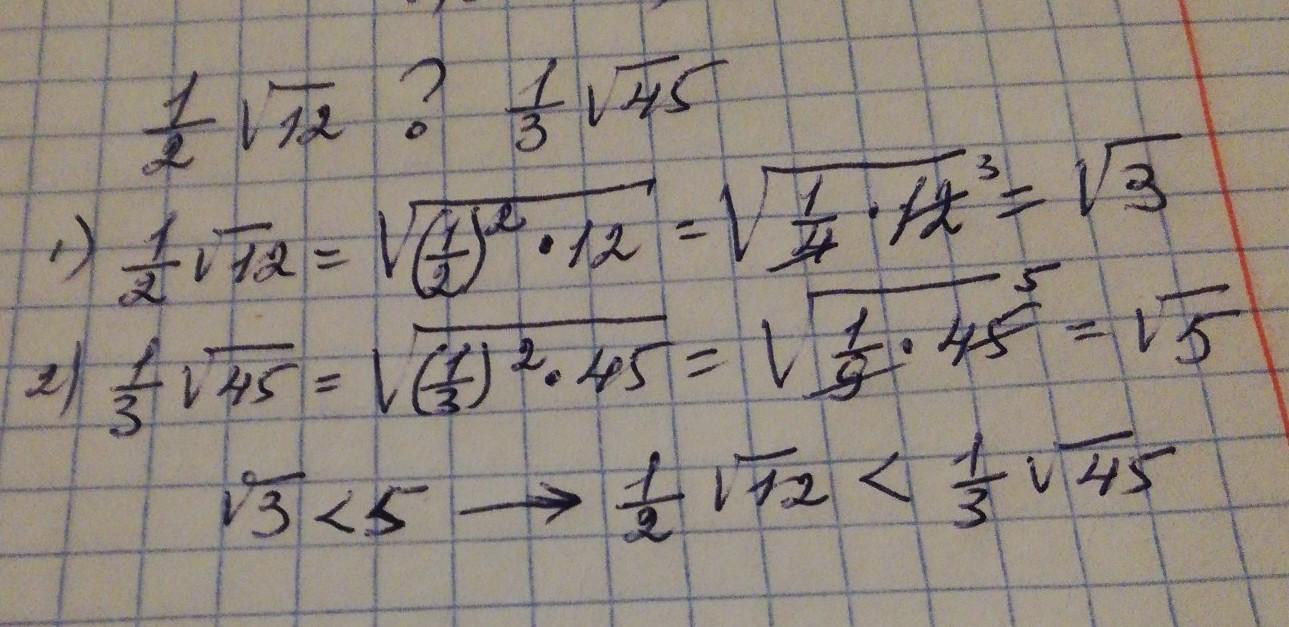 1/2 √12 ? 1/3 √45
1) 1/2 √12 = √((1/2)² · 12) = √(1/4 · 12 3) = √3
2) 1/3 √45 = √((1/3)² · 45) = √(1/9 · 45 5) = √5
√3 < 5 → 1/2 √12 < 1/3 √45